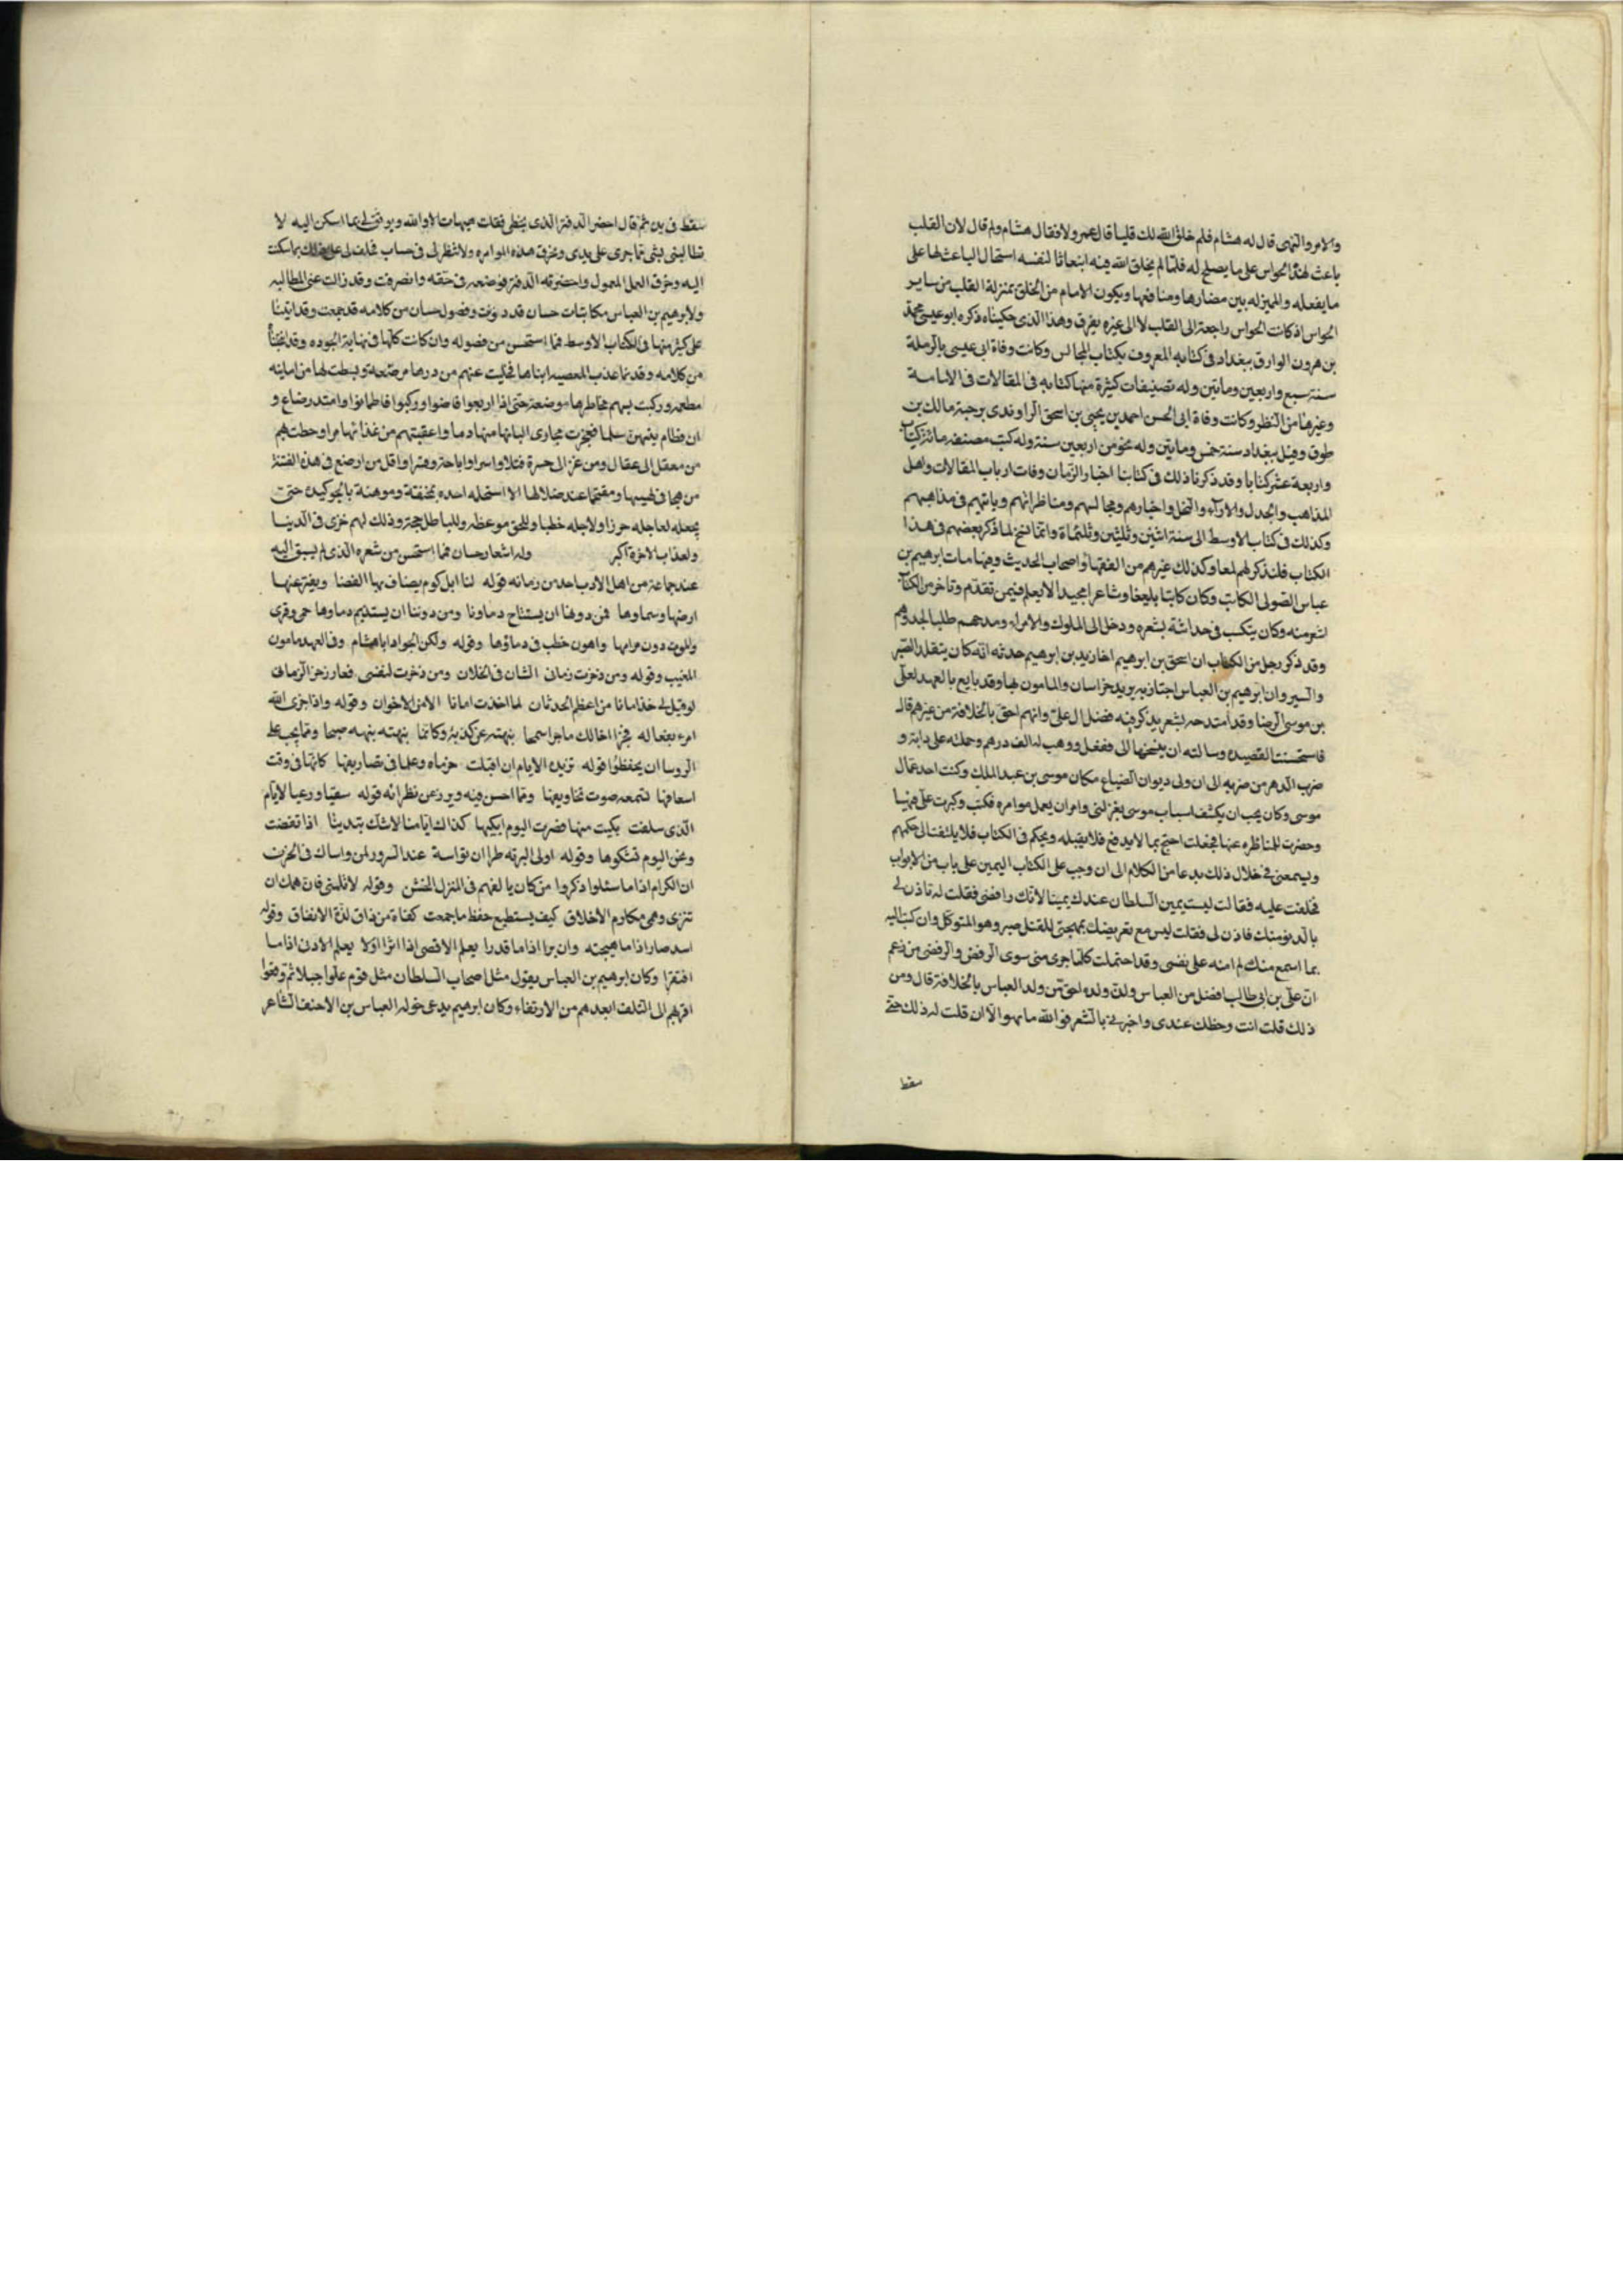 والامر والنهى قال له هشام فلم خلق الله لك قلبا قال عمرو لا فقال هشام ولم قال لان القلب
باعث لهذه الحواس على ما يصلح له فلما لم يخلق الله فيه ابنعاثا لنفسه استحال الباعث لها على
ما يفعله والميزله بين مضارها ومنافعها ويكون الامام من الخلق بمنزلة القلب من ساير
الحواس اذ كانت الحواس راجعة الى القلب لا الى غيره بفرق وهذا الذى حكيناه ذكره ابو عيسى محمد
بن هرون الوارق ببغداد فى كتابه المعروف بكتاب المجالس وكانت وفاة ابى عيسى بالرملة
سنة سبع واربعين ومايتين وله تصنيفات كثيرة منها كتابه فى المقالات فى الامامة
وغيرها من النظر وكانت وفاة ابى الحسن احمد بن يحيى بن اسحق الراوندى برحبة مالك بن
طوق وقيل ببغداد سنة خمس ومايتين وله نحو من اربعين سنة وله كتب مصنفه مائة كتاب
واربعة عشر كتابا وقد ذكرنا ذلك فى كتابنا اخبار الزمان وفات ارباب المقالات واهل
المذاهب والجدل والاراء والنحل واخبارهم ومجالسهم ومناظراتهم وباتهم فى مذاهبهم
وكذلك فى كتاب الاوسط الى سنة اثنين وثلثين وثلثماة وانما نخ لما ذكر بعضهم فى هذا
الكتاب فلنذكر لهم لمعا وكذلك غيرهم من الفقها واصحاب الحديث وفيها مات ابرهيم بن
عباس الصولى الكاتب وكان كاتبا بليغا وشاعرا مجيدا لا يعلم فيمن تقدم وتاخر من الكتاب
اشعر منه وكان يتكسب فى حداثة بشعره ودخل الى الملوك والامراء ومدحهم طلبا لجدوهم
وقد ذكر رجل من الكتاب ان اسحق بن ابرهيم اخا زيد بن ابرهيم حدثه انه كان يتقلد الصير
والسيروان ابرهيم بن العباس اجتاز به يريد خراسان والمامون بها وقد بايع بالعهد لعلى
بن موسى الرضا وقد امتدحه بشعر يذكر فيه فضل ال على وانهم احق بالخلافة من غيرهم قال
فاستحسنت القصيده وسالته ان ينسخها الى ففعل ووهبت له الف درهم وحملته على دابة و
ضرب الدهر من ضربه الى ان ولى ديوان الضياع مكان موسى بن عبد الملك وكنت احد عمال
موسى وكان يحب ان يكشف اسباب موسى بعزلنى وامر ان يعمل موامره فكتب وكثرت على فيها
وحضرت للمناظره عنها فجعلت احتج بما لا يدفع فلا يقبله ويحكم فى الكتاب فلا يلتفت الى حكمهم
ويسمعنى فى خلال ذلك بدعا من الكلام الى ان وجب على الكتاب اليمين على باب من الابواب
فحلفت عليه فقال ليست يمين السلطان عندك يمينا لانك رافضى فقلت له تاذن لى
بالدنو منك فاذن لى فقلت ليس مع تعريضك بمهجتى للقتل صبر وهو المتوكل وان كتب اليه
بما اسمع منك لم امنه على نفسى وقد احتملت كلما جرى منى سوى الرفض والرفض من زعم
ان على بن ابى طالب افضل من العباس وان ولده احق من ولد العباس بالخلافة قال ومن
ذلك قلت انت وخطك عندى واخبرنى بالشعر فوالله ما هو الا ان قلت له ذلك حتى
سقط
سقط فى يديه ثم قال احضر الدفتر الذى بخطى فقلت هيهات لا والله ويوثق لى بما اسكن اليه لا
تطالبنى بشى مما جرى على يدى وتخرق هذه الموامره ولا تنظر لى فى حساب فحلف لى على ذلك بما سكنت
اليه وخرق العمل المعمول واحضرته الدفتر فوضعه فى خفه وانصرفت وقد زالت عنى المطالبه
ولابرهيم بن العباس مكاتبات حسان قد دونت وفصول حسان من كلامه قد جمعت وقد اتينا
على كثير منها فى الكتاب الاوسط فما استحسن من فصوله وان كانت كلها فى نهاية الجوده وقد
من كلامه وقد نما عذب المعصيه ابناها فحلبت عنهم من درها مرضعة وبسطت لها من امانيه
مطعمه وركبت بهم مخاطرها موضعة حتى اذا ارتعوا فاضوا وركبوا فاطمانوا وامتد رضاع و
ان فطام بينهن سلما ففجرت مجارى البانها منها دما واعقبتهم من غذائها مرا وحطت بهم
من معقل الى عقال ومن عز الى حسرة قتلا واسرا واباحة وقسرا وقل من ارضع فى هذه الفتنة
من هجا فى لهيبها ومقتحما عند ضلالها الا استحله اخذه بمخنقة وموهنة بالحق كيده حتى
يجعله لعاجله حرزا ولاجله خطبا وللحق موعظه وللباطل حجة وذلك لهم خزى فى الدنيا
ولعذاب الاخرة اكبر وله اشعار حسان فما استحسن من شعره الذى لم يسبق اليه
عند جماعة من اهل الادب احد من زمانه قوله لنا ابل كوم يضاف بها الفضا ويفتر عنها
ارضها وسماوها فمن دونها ان يستباح دماونا ومن دوننا ان يستذم دماوها حمى وقرى
والموت دون مرامها واهون خطب فى دماؤها وقوله ولكن الجواد ابا هشام وفى العهد مامون
المغيب وقوله ومن ذخرت زمانى الشان فى الخلان ومن ذخرت لنفسى فعاد زخر الزمان
لو قيل لى خذ امانا من اعظم الحدثان لما اخذت امانا الا من الاخوان وقوله واذا جزى الله
امرء بفعاله فجزا اخا لك ماجدا سمحا نبهته عن كذبه وكانما نبهته نبهه صبحا ومما يجب على
الروسا ان يحفظوا قوله تزيده الايام ان اقبلت حزماه وعلما فى تصاريفها كانها فى وقت
اسعافها تسمعه صوت تخاويفها ومما احسن فيه وبرز عن نظرائه قوله سقيا ورعيا لايام
الذى سلفت بكيت منها فصرت اليوم ابكيها كذاك ايامنا لا شك بتدينا اذا تقضت
ونحن اليوم نشكوها وقوله اولى البريه طرا ان تواسه عند السرور لمن واساك فى الحزن
ان الكرام اذا ما سئلوا ذكروا من كان يالفهم فى المنزل الخشن وقوله لا تلمنى فان همك ان
تثرى وهمى مكارم الاخلاق كيف يستطيع حفظ ما جمعت كفاه من ذاق لذة الانفاق وقوله
اسد ضار اذا ما هيجته وابن برا اذا ما قدرا يعلم الاقصى اذا اثرا اولا يعلم الادنى اذا ما
افتقرا وكان ابرهيم بن العباس يقول مثل اصحاب السلطان مثل قوم علوا جبلا ثم وقعوا
اقربهم الى التلف ابعدهم من الارتقاء وكان ابرهيم يدعى خوله العباس بن الاحنف الشاعر